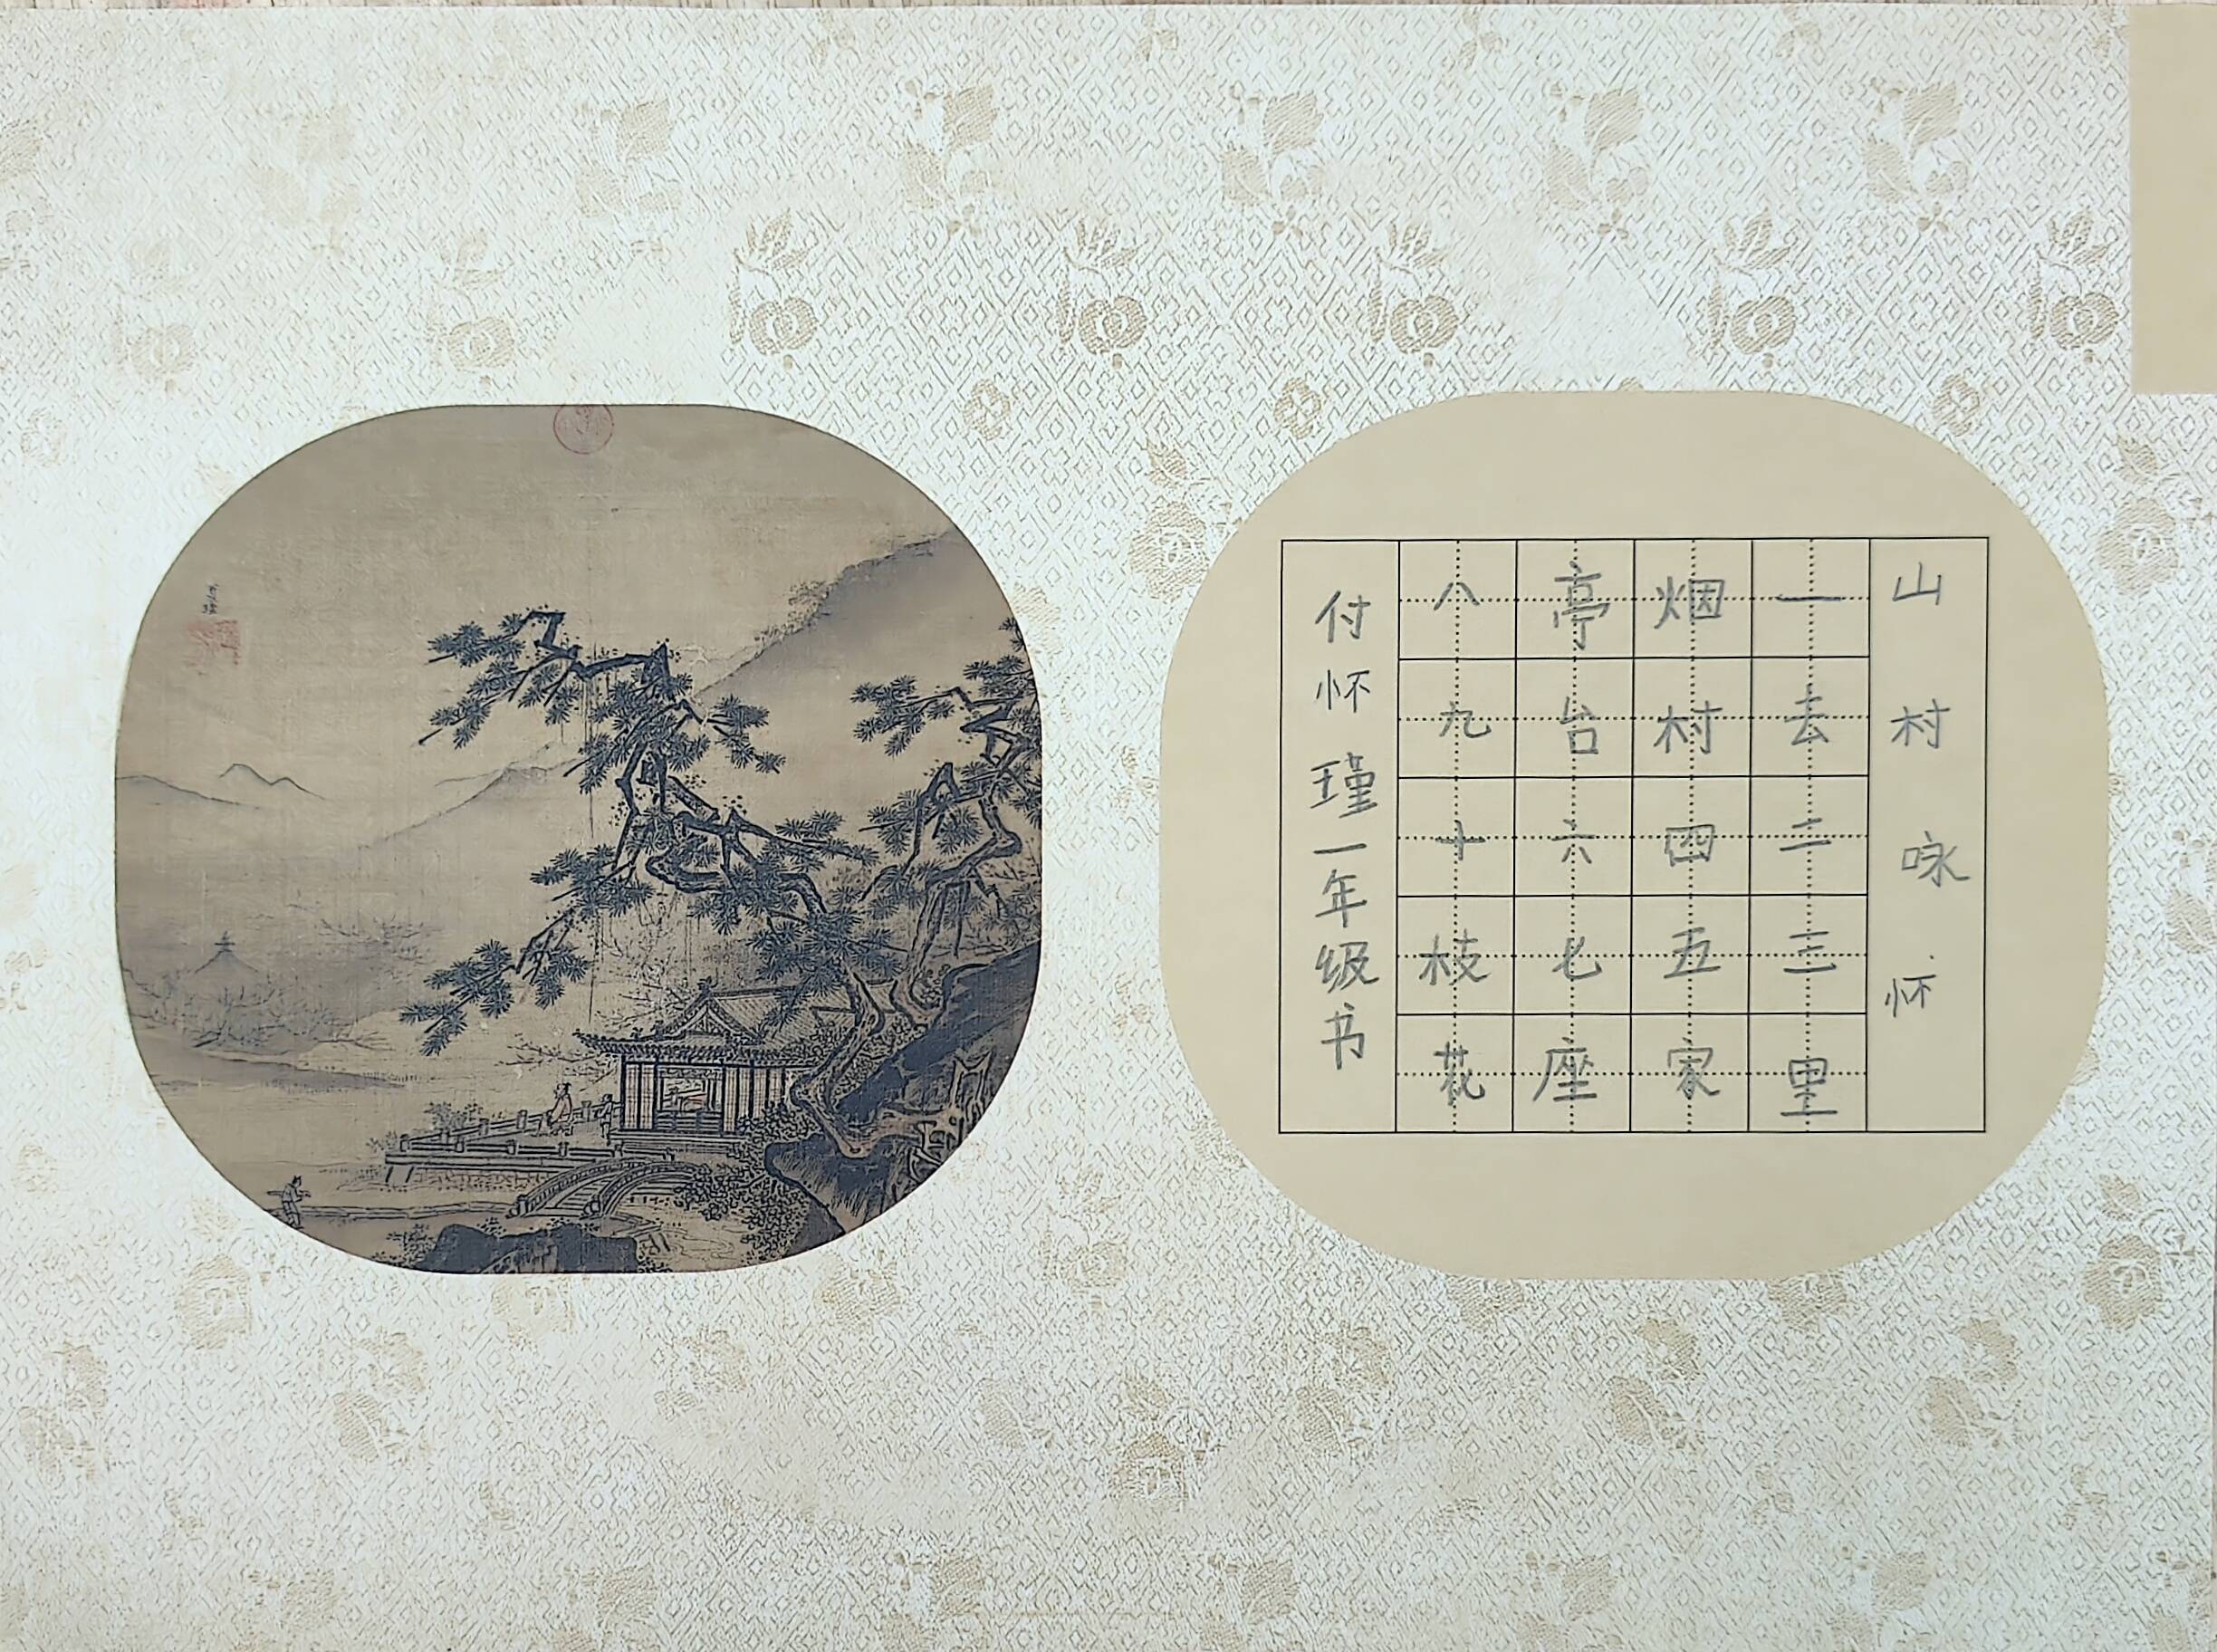 山村咏怀
一去二三里
烟村四五家
亭台六七座
八九十枝花
付怀瑾一年级书